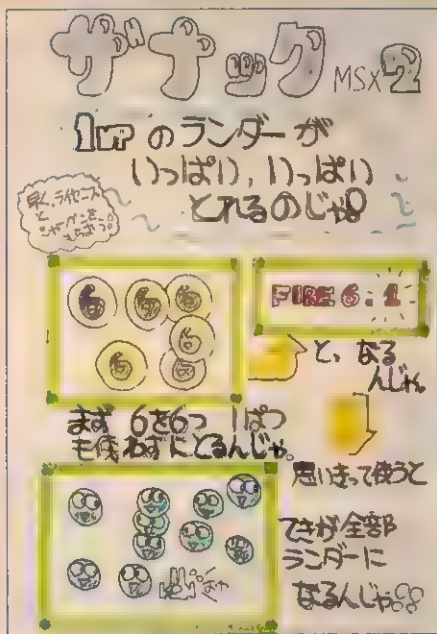 ザナック MSX2
1upのランダーが
いっぱい、いっぱい
とれるのじゃ!
早く、ライセンス
と
シャーペンを
6 6 6 6 6 6
FIRE 6:1
と、なる
んじゃ。
まず 6を6つ 1ぱつ
も使わずにとるんじゃ。
思いきって使うと
てきが全部
ランダーに
なるんじゃ!!